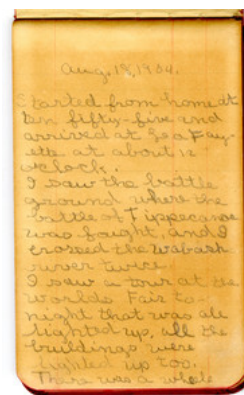 Aug. 18, 1904.
Started from home at
ten fifty-five and
arrived at
ette at about 12
oclock.
I saw the battle
ground where the
battle of Tippecanoe
was fought, and I
crossed the Wabash
river twice
I saw a tour at the
worlds Fair to-
night that was all
lighted up, all the
buildings were
lighted up too.
There was a whole